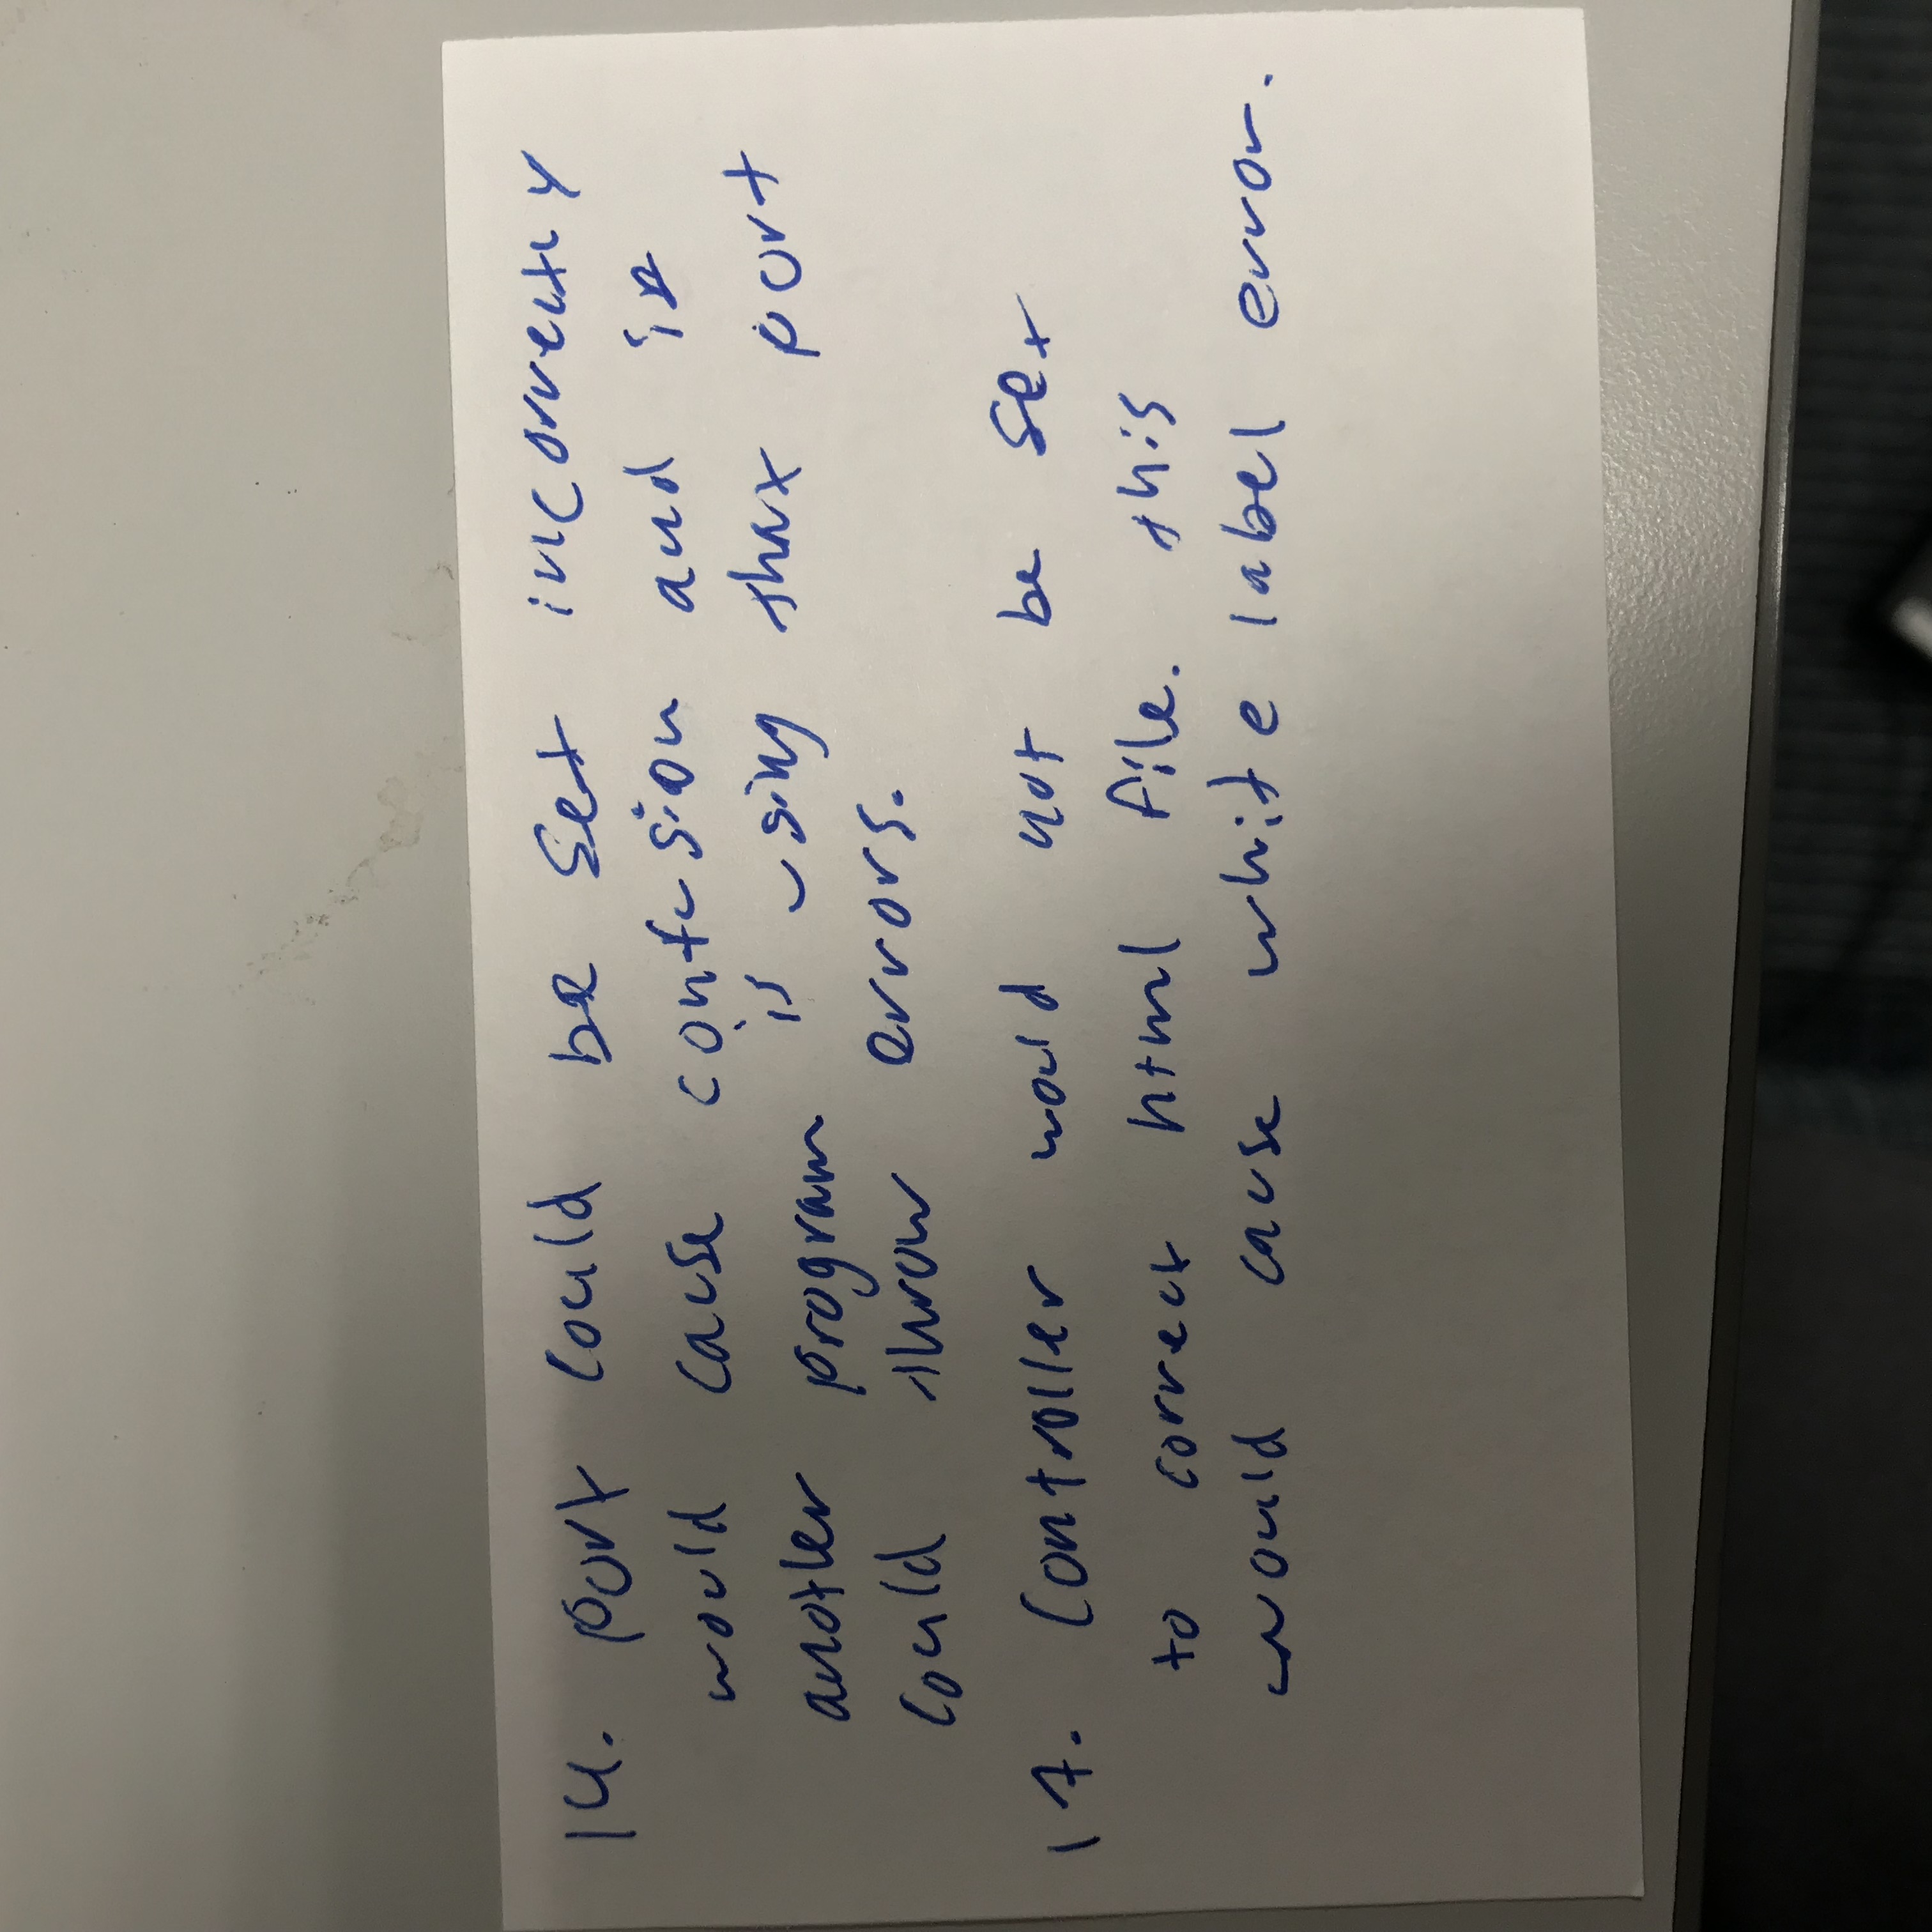 14. port could be set incorrectly
would cause confusion and if
another program is using that port
could throw errors.
17. Controller would not be set
to correct html file. this
would cause white label error.